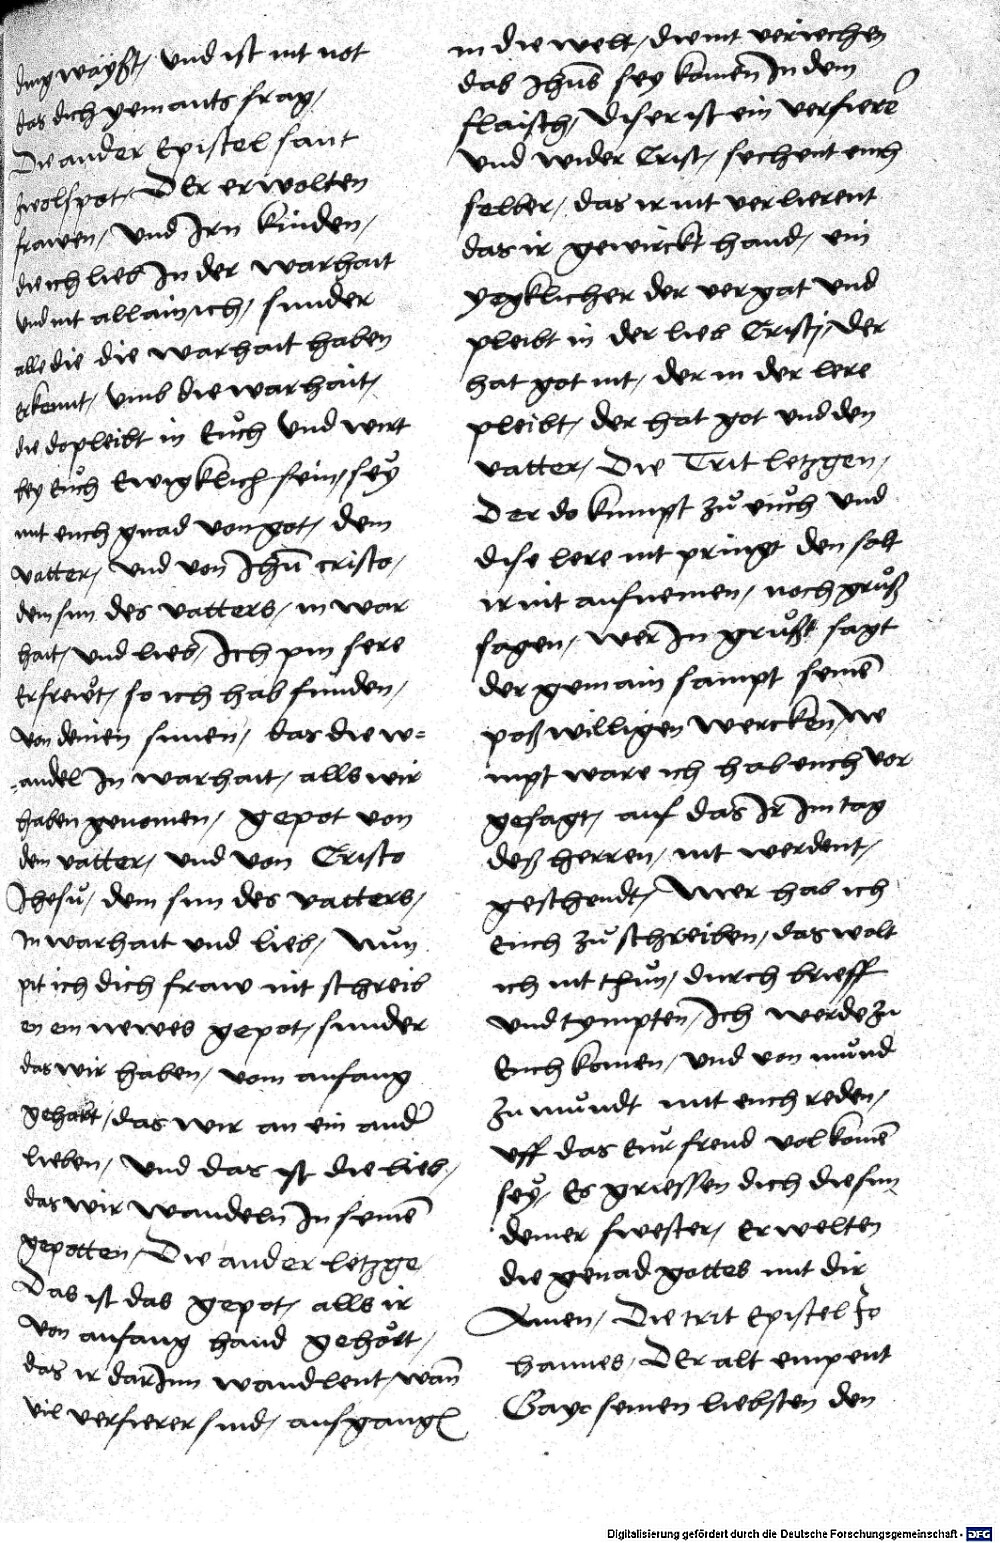 ding wayßt / und ist nit not
das dich yemants frag /
Die ander Epistel sant
zwolfpot / DEr erwolten
frawen / und Irn kinden /
die ich lieb In der warhait
und nit allain ich / sunder
alle die die warhait haben
erkennt / umb die warhait /
die do pleibt in Euch und wirt
bey Euch Ewigklich sein / sey
mit euch gnad von got / dem
vatter / und von Ihū cristo /
dem sun des vatters / in war
hait / und lieb / Ich pin sere
Erfrewt / so ich hab funden /
von deinen sunen / das die w=
=andel In warhait / alls wir
haben genomen / gepot von
dem vatter / und von Cristo
Jhesu / dem sun des vatters /
In warhait und lieb / Nun
pit ich dich fraw nit schreib
en ein newes gepot / sunder
das wir haben / vom anfang
gehabt / das wir an ein and̄
lieben / und das ist die lieb /
das wir wandeln In seinē
gepotten / Die ander letzge
Das ist das gepot / alls ir
von anfang hand gehört /
das ir darInn wandlent / wañ
vil verfierer sind / aufgang
in die welt / die nit veriechen
das Ihūs sey komen In dem
flaisch / diser ist ein verfierē
und wider Crist / sechent euch
selber / das ir nit verlierent
das ir gewirckt hand / ein
yegklicher der vergat und
pleibt in der lieb Cristi / der
hat got nit / der in der lere
pleibt / der hat got und den
vatter / Die Trit letzgen /
Der do kumpt zu euch und
dise lere nit pringt den solt
ir nit aufnemen / noch gruß
sagen / wer In grußt sagt
der gemain sampt seinē
poß willigen wercken / Ne
mpt ware ich hab euch vor
gesagt / auf das Ir Im tag
deß herren / nit werdent /
geschendt / Mer hab ich
Euch zu schreiben / das wolt
ich nit thun / durch brieff
und tympten / Ich werde zu
Euch komen / und von mund
zu mundt mit euch reden /
uff das Eur freud volkomē
sey / Es griessen dich die sun
deiner swester / Erwelten
die genad gottes mit dir
Amen / Die trit Epistel Jo
hannes / DEr alt empeut
Gayo seinen liebsten den
Digitalisierung gefördert durch die Deutsche Forschungsgemeinschaft - DFG